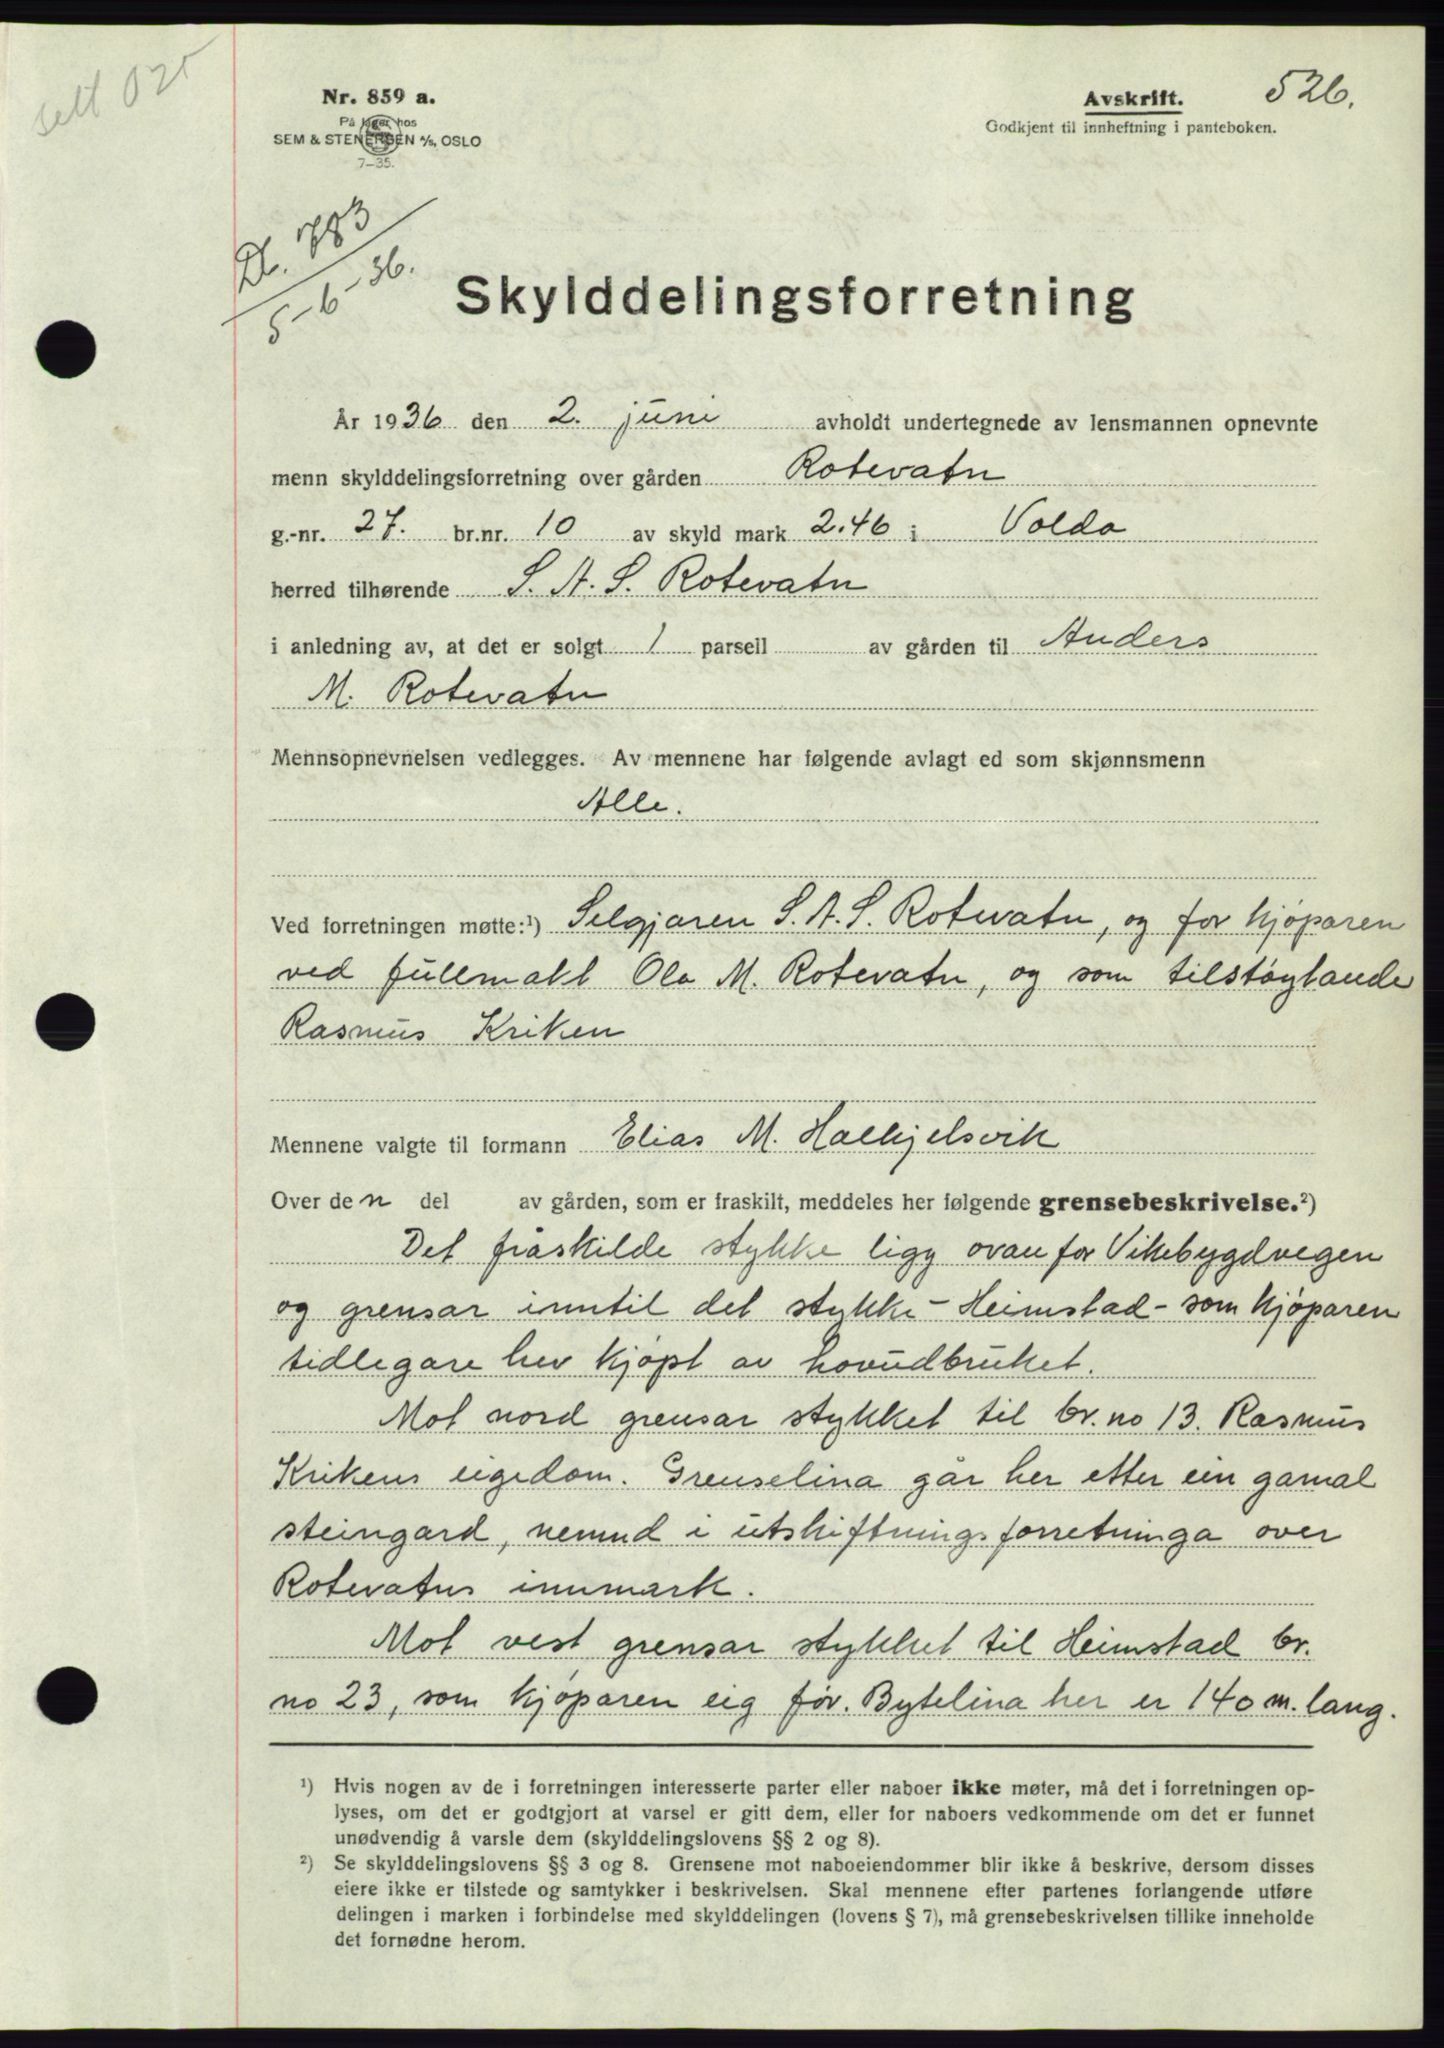 sett
Nr. 859 a.
På lager hos
SEM & STENERSEN A/S, OSLO
7-35.
Avskrift. 526.
Godkjent til innheftning i panteboken.
Db. 783
5-6-36.
Skylddelingsforretning
År 1936 den 2. juni avholdt undertegnede av lensmannen opnevnte
menn skylddelingsforretning over gården Rotevatn
g.-nr. 27. br.nr. 10 av skyld mark 2.46 i Volda
herred tilhørende S. A. S. Rotevatn
i anledning av, at det er solgt 1 parsell av gården til Anders
M. Rotevatn
Mennsopnevnelsen vedlegges. Av mennene har følgende avlagt ed som skjønnsmenn
Alle.
Ved forretningen møtte:¹) Selgjaren S. A. S. Rotevatn, og for kjøparen
ved fullmakt Ola M. Rotevatn, og som tilstøytande
Rasmus Kriken
Mennene valgte til formann Elias M. Halkjelsvik
Over den del av gården, som er fraskilt, meddeles her følgende grensebeskrivelse.²)
Det fråskilde stykke ligg ovanfor Vikebygdvegen
og grensar inntil det stykke - Heimstad - som kjøparen
tidlegare hev kjøpt av hovudbruket.
Mot nord grensar stykket til br. no 13. Rasmus
Krikens eigedom. Grenselina går her etter ein gamal
steingard, nemnd i utskiftningsforretninga over
Rotevatns innmark.
Mot vest grensar stykket til Heimstad br.
no 23, som kjøparen eig før. Bytelina her er 140 m. lang.
¹) Hvis nogen av de i forretningen interesserte parter eller naboer ikke møter, må det i forretningen op-
lyses, om det er godtgjort at varsel er gitt dem, eller for naboers vedkommende om det er funnet
unødvendig å varsle dem (skylddelingslovens §§ 2 og 8).
²) Se skylddelingslovens §§ 3 og 8. Grensene mot naboeiendommer blir ikke å beskrive, dersom disses
eiere ikke er tilstede og samtykker i beskrivelsen. Skal mennene efter partenes forlangende utføre
delingen i marken i forbindelse med skylddelingen (lovens § 7), må grensebeskrivelsen tillike inneholde
det fornødne herom.